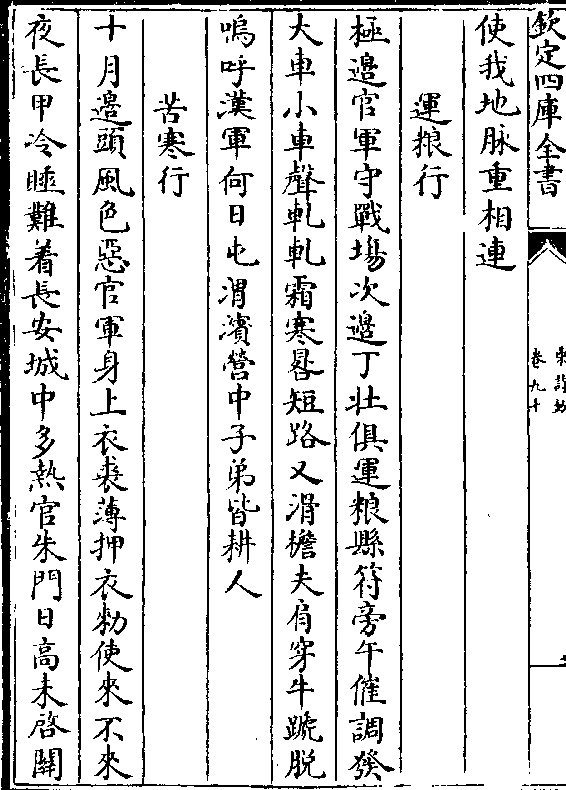 欽定四庫全書
卷九十
使我地脉重相連
運粮行
極邉官軍守戰場次邉丁壯俱運粮縣符旁午催調發
大車小車聲軋軋霜寒晷短路又滑擔夫肩穿牛蹏脱
嗚呼漢軍何日屯渭濱營中子弟皆耕人
苦寒行
十月邉頭風色惡官軍身上衣裘薄押衣勑使來不來
夜長甲冷睡難着長安城中多熱官朱門日高未啓關